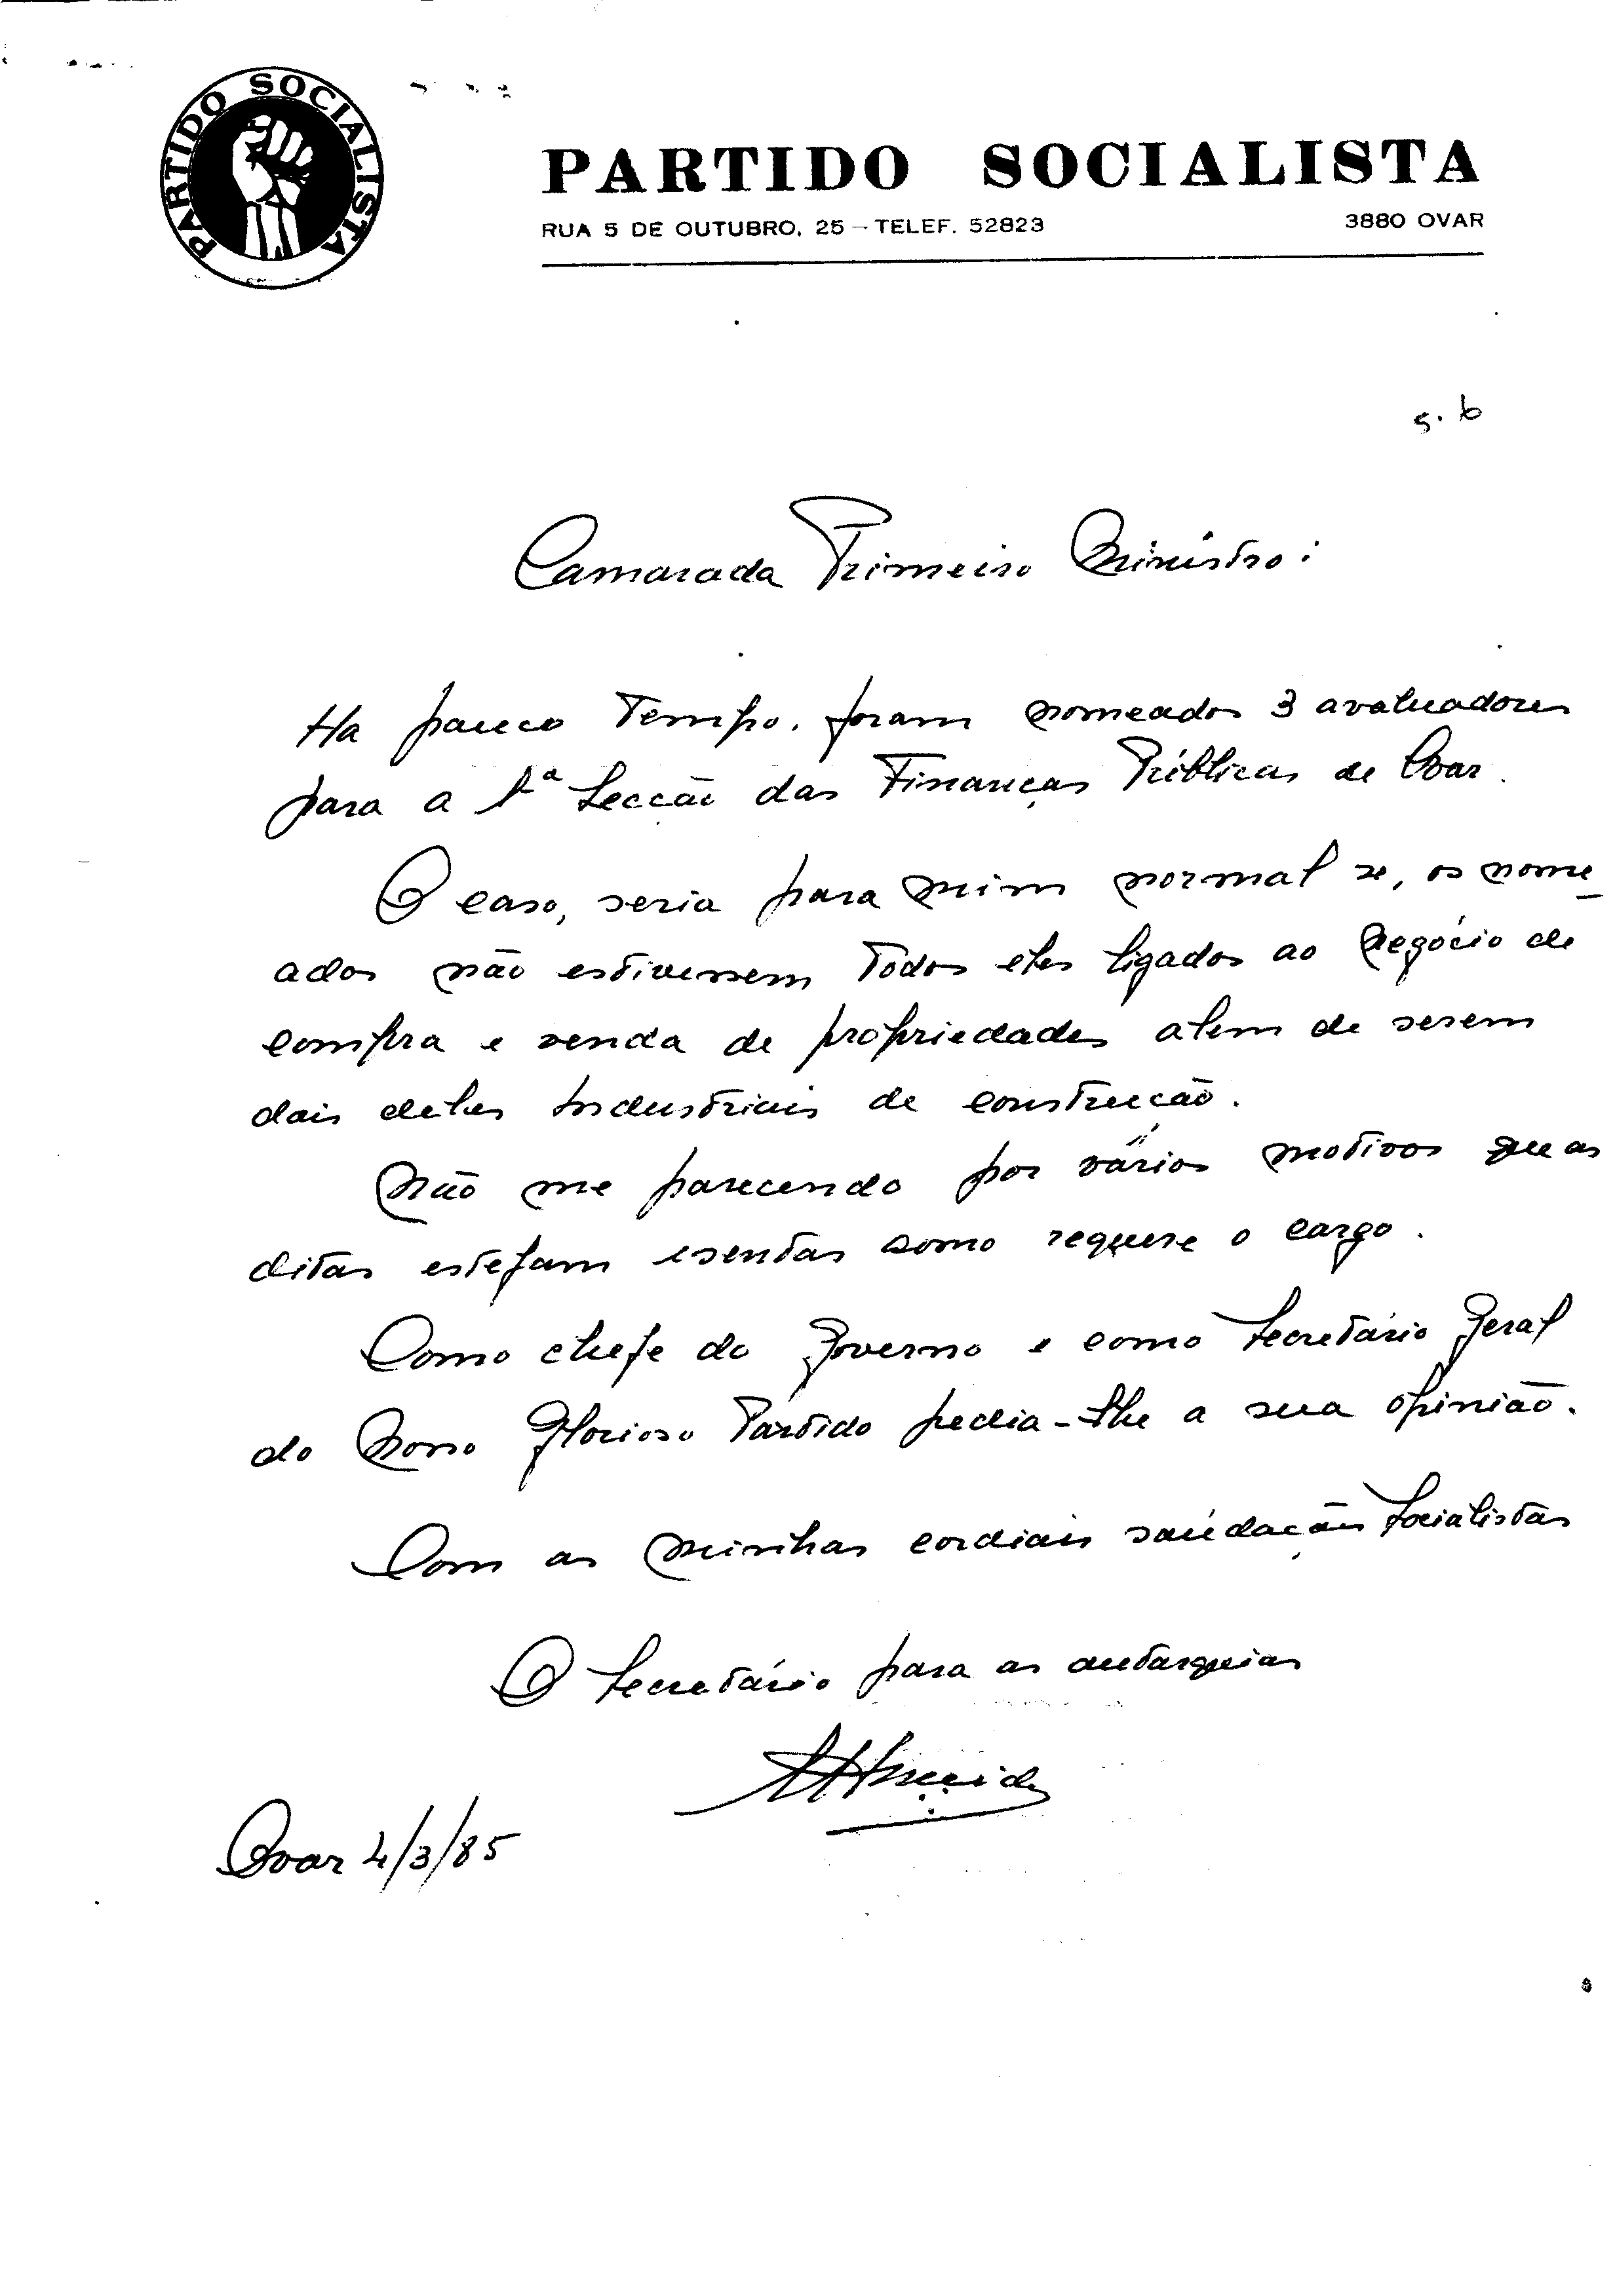 PARTIDO SOCIALISTA
PARTIDO SOCIALISTA
RUA 5 DE OUTUBRO, 25 – TELEF. 52823 3880 OVAR
s. b
Camarada Primeiro Ministro:
Ha pouco tempo, foram nomeados 3 avaluadores
para a 1ª Secção das Finanças Públicas de Ovar.
O caso, seria para mim normal se, os nome_
ados não estivessem todos eles ligados ao negócio de
compra e venda de propriedades alem de serem
dois deles Industriais de construcção.
Não me parecendo por vários motivos que as
ditas estejam esentas como requere o cargo.
Como chefe do Governo e como Secretário Geral
do Nosso Glorioso Partido pedia-lhe a sua opinião.
Com as minhas cordiais saúdações Socialistas
O Secretário para as autarquias
Almeida
Ovar 4/3/85